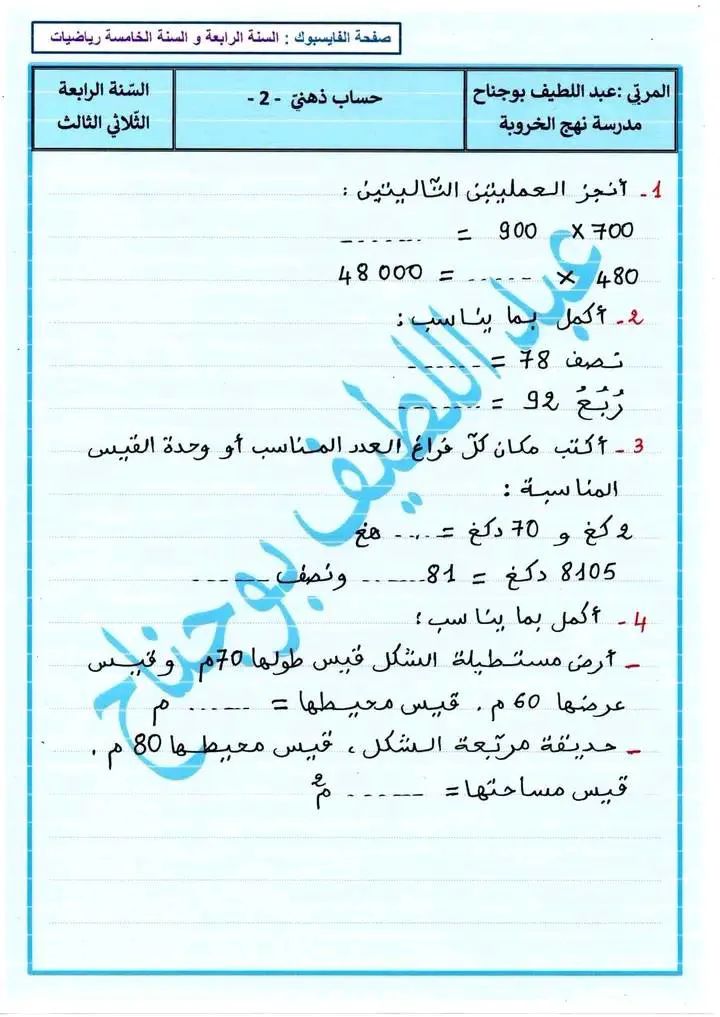 صفحة الفايسبوك : السنة الرابعة و السنة الخامسة رياضيات
المربّي :عبد اللطيف بوجناح
مدرسة نهج الخروبة
حساب ذهنيّ - 2 -
السّنة الرابعة
الثّلاثي الثالث
1- أنجز العمليتين التّاليتين :
700 x 900 = .......
480 x ...... = 48 000
2- أكمل بما يناسب :
نصف 78 = .......
رُبُعُ 92 = ........
3- أكتب مكان كلّ فراغ العدد المناسب أو وحدة القيس
المناسبة :
2 كغ و 70 دكغ = .... هغ
8105 دكغ = 81...... ونصف .......
4- أكمل بما يناسب :
- أرض مستطيلة الشكل قيس طولها 70م وقيس
عرضها 60 م . قيس محيطها = ...... م
- حديقة مربّعة الشكل ، قيس محيطها 80 م .
قيس مساحتها = ...... م²
عبد اللطيف بوجناح